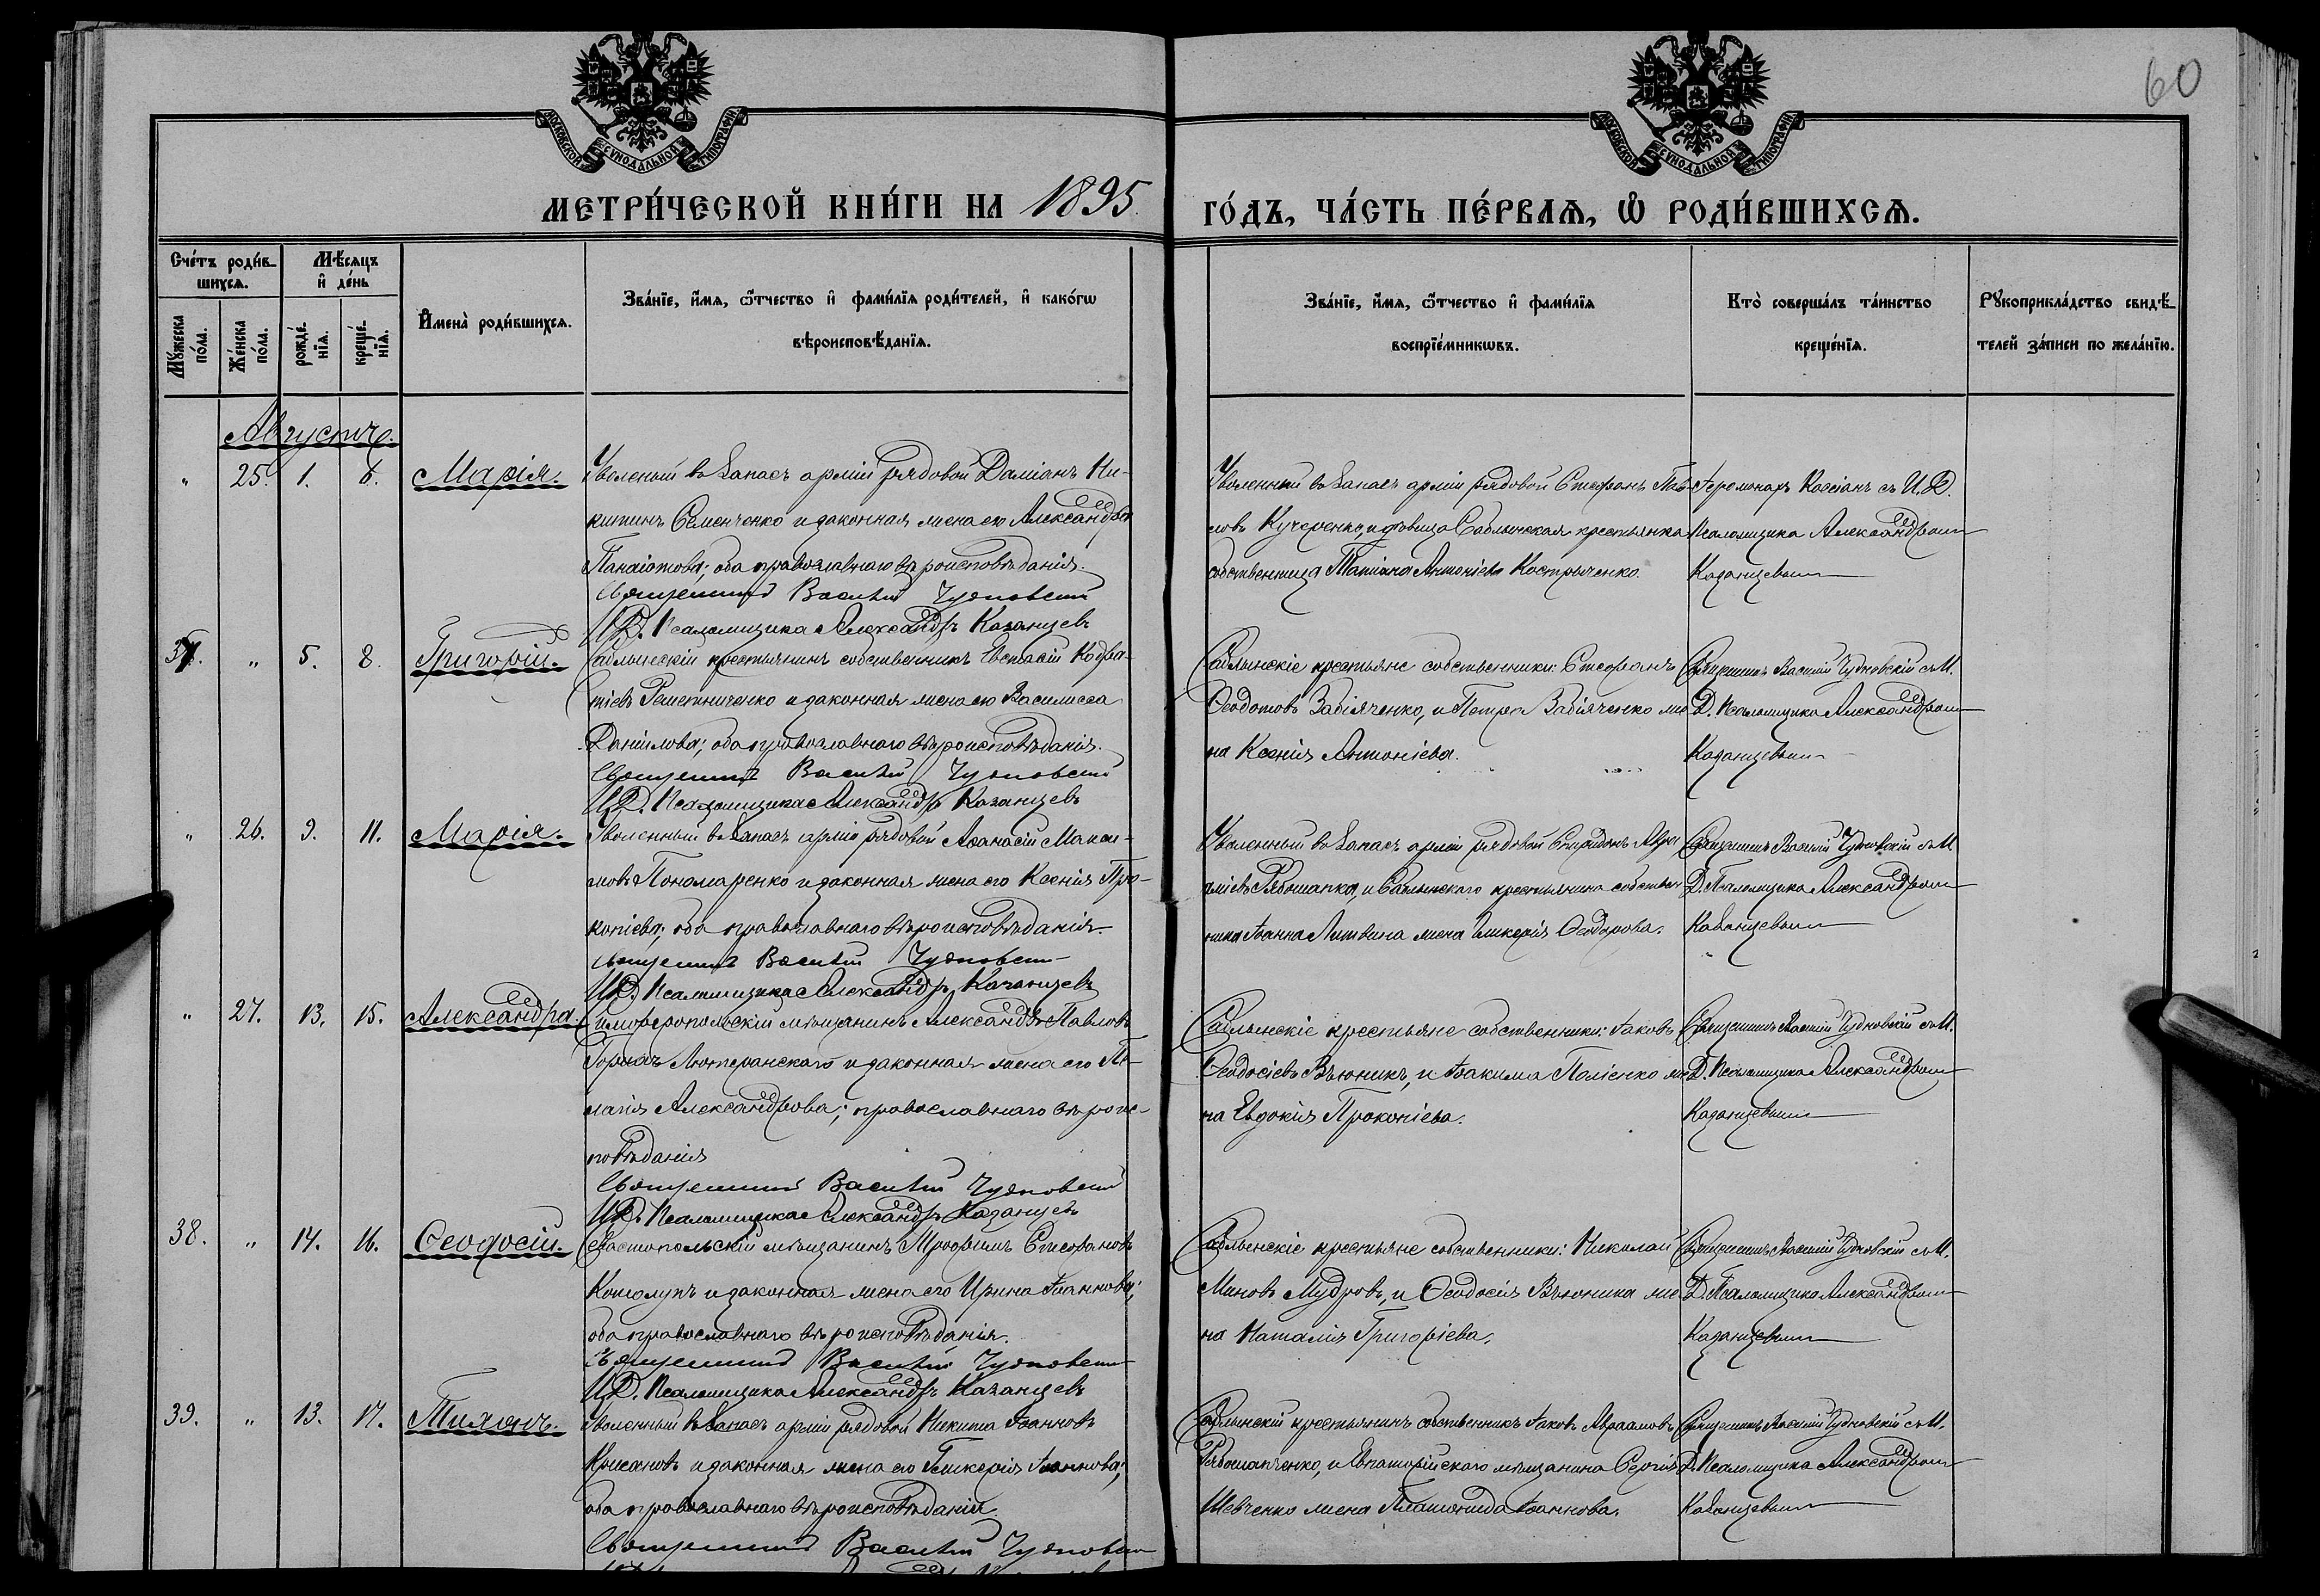 60
МОСКОВСКОЙ СѴНОДАЛЬНОЙ ТИПОГРАФІИ
МОСКОВСКОЙ СѴНОДАЛЬНОЙ ТИПОГРАФІИ
МЕТРИ́ЧЕСКОЙ КНИ́ГИ НА 1895
ГО́ДЪ, ЧА́СТЬ ПЕ́РВАѦ, Ѽ РОДИ́ВШИХСѦ.
Сче́тъ роди́в-
шихсѧ.
Мѣ́сѧцъ
и҆ де́нь
Мꙋ́жеска
по́ла.
Же́нска
по́ла.
рожде́-
нїѧ.
креще́-
нїѧ.
И҆мена̀ роди́вшихсѧ.
Зва́нїе, и҆́мѧ, ѻ҆́тчество и҆ фами́лїѧ роди́телей, и҆ како́гѡ
вѣроисповѣ́данїѧ.
Зва́нїе, и҆́мѧ, ѻ҆́тчество и҆ фами́лїѧ
воспрїе́мникѡвъ.
Кто̀ соверша́лъ та́инство
креще́нїѧ.
Рꙋкоприкла́дство свидѣ́-
телей за́писи по жела́нїю.
Августъ.
" 25. 1. 6. Марія.
Уволеный въ запасъ арміи рядовой Даміанъ Ни-
китинъ Семенченко и законная жена его Александра
Панаіотова; оба православнаго вѣроисповѣданія.
Священникъ Василій Чудновскій
И.Д. Псаломщика Александръ Казанцевъ
Уволенный въ запасъ арміи рядовой Стефанъ Пав-
ловъ Кучеренко, и дѣвица Саблынская крестьянка
собственница Татіана Антоніева Костыченко.
Іеромонахъ Кассіанъ съ И.Д.
Псаломщика Александромъ
Казанцевымъ
37. " 5. 8. Григорій.
Саблынскій крестьянинъ собственникъ Евстафій Кодра-
тіевъ Решетниченко и законная жена его Василисса
Даніилова; оба православнаго вѣроисповѣданія.
Священникъ Василій Чудновскій
И.Д. Псаломщика Александръ Казанцевъ
Саблынскіе крестьяне собственники: Стефанъ
Ѳеодотовъ Забіяченко, и Петра Забіяченко же-
на Ксенія Антоніева.
Священникъ Василій Чудновскій съ И.
Д. Псаломщика Александромъ
Казанцевымъ
" 26. 9. 11. Марія.
Уволенный въ запасъ арміи рядовой Аѳанасій Макси-
мовъ Пономаренко и законная жена его Ксенія Про-
копіева; оба православнаго вѣроисповѣданія.
Священникъ Василій Чудновскій
И.Д. Псаломщика Александръ Казанцевъ
Уволенный въ запасъ арміи рядовой Спиридонъ Авра
аміевъ Рябошапка, и Саблынскаго крестьянина собствен
ника Іоанна Литвина жена Гликерія Ѳеодорова.
Священникъ Василій Чудновскій съ И
Д. Псаломщика Александромъ
Казанцевымъ
" 27. 13. 15. Александра.
Симферопольскій мѣщанинъ Александръ Павловъ
Лютеранскаго и законная жена его Пе-
лагія Александрова; православнаго вѣроис-
повѣданія
Священникъ Василій Чудновскій
И.Д. Псаломщика Александръ Казанцевъ
Саблынскіе крестьяне собственники: Іаковъ
Ѳеодосіевъ Вьюникъ, и Іоакима Поліенко же-
на Евдокія Прокопіева.
Священникъ Василій Чудновскій съ И.
Д. Псаломщика Александромъ
Казанцевымъ
38. " 14. 16. Ѳеодосій.
Севастопольскій мѣщанинъ Трофимъ Стефановъ
и законная жена его Ирина Іоаннова;
оба православнаго вѣроисповѣданія.
Священникъ Василій Чудновскій
И.Д. Псаломщика Александръ Казанцевъ
Саблынскіе крестьяне собственники: Николай
Миновъ Мудровъ, и Ѳеодосія Вьюника же-
на Наталія Григоріева.
Священникъ Василій Чудновскій съ И.
Д. Псаломщика Александромъ
Казанцевымъ
39. " 13. 17. Тихонъ.
Уволенный въ запасъ арміи рядовой Никита Іоанновъ
и законная жена его Гликерія Іоаннова;
оба православнаго вѣроисповѣданія.
Священникъ Василій Чудновскій
Саблынскій крестьянинъ собственникъ Іаковъ Авраамовъ
Рябошапченко, и Евпаторійскаго мѣщанина Сергія
Шевченко жена Платонида Іоаннова.
Священникъ Василій Чудновскій съ И.
Д. Псаломщика Александромъ
Казанцевымъ